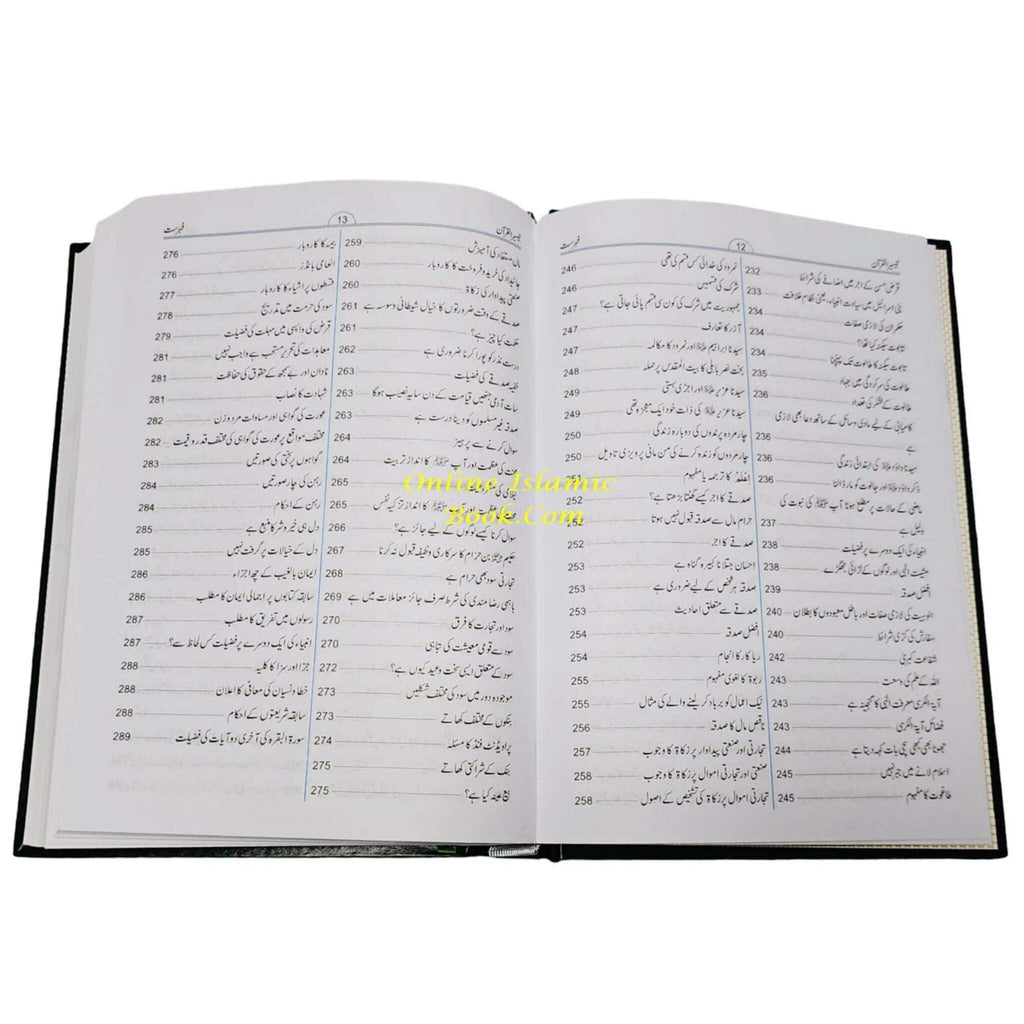 تیسیر القرآن 12 فہرست
قرض حسن کے اجر میں اضافے کی شرائط 232
بنی اسرائیل میں سیادت انبیاء، یعنی نظام خلافت 233
حکمران کی لازمی صفات 234
تابوت سکینہ کیا تھا؟ 234
تابوت سکینہ کا طالوت تک پہنچنا 234
طالوت کی سرکردگی میں جہاد 235
طالوت کے لشکر کی تعداد 236
کامیابی کے لیے مادی وسائل کے ساتھ دعا بھی لازمی
ہے 236
سیدنا داؤد علیہ السلام کی ابتدائی زندگی 236
ذکر داؤد علیہ السلام اور جالوت کو مار ڈالنا
ماضی کے حالات پر مطلع ہونا آپ ﷺ کی نبوت کی
دلیل ہے 237
انبیاء کی ایک دوسرے پر فضیلت 238
مشیت الٰہی اور لوگوں کے لڑائی جھگڑے 238
افضل صدقہ 239
الوہیت کی لازمی صفات اور باطل معبودوں کا بطلان 240
سفارش کی کڑی شرائط 240
شفاعت کبریٰ 242
اللہ کے علم کی وسعت 243
آیۃ الکرسی معرفت الٰہی کا گنجینہ ہے 243
فضائل آیۃ الکرسی 243
جھوٹا بھی کبھی سچی بات کہہ دیتا ہے 244
اسلام لانے میں جبر نہیں 245
طاغوت کا مفہوم 245
نمرود کی خدائی کس قسم کی تھی 246
شرک کی قسمیں 246
جمہوریت میں شرک کی کون سی قسم پائی جاتی ہے؟
آزر کا تعارف 247
سیدنا ابراہیم علیہ السلام اور نمرود کا مکالمہ 247
بخت نصر بابلی کا بیت المقدس پر حملہ 248
سیدنا عزیر علیہ السلام اور اجڑی بستی 249
سیدنا عزیر علیہ السلام کی ذات خود ایک معجزہ تھی 249
چار مردہ پرندوں کی دوبارہ زندگی 250
چار مردوں کو زندہ کرنے کی من مانی پرویزی تاویل 250
کا ترجمہ یا مفہوم 251
صدقے کا اجر کیسے گھٹتا بڑھتا ہے؟
حرام مال سے صدقہ قبول نہیں ہوتا 252
صدقے کا اجر 252
احسان جتلانا کبیرہ گناہ ہے 252
صدقہ ہر شخص کے لیے ضروری ہے 253
صدقے سے متعلق احادیث 253
افضل صدقہ 254
ریا کار کا انجام 254
ربوۃ کا لغوی مفہوم 255
نیک اعمال کو برباد کر لینے والے کی مثال 255
ناقص مال کا صدقہ 256
تجارتی اور صنعتی پیداوار پر زکاۃ کا وجوب 257
صنعتی اور تجارتی اموال پر زکاۃ کا وجوب 258
تجارتی اموال پر زکاۃ کی تشخیص کے اصول 258
تیسیر القرآن 13 فہرست
مال مستفاد کی آمیزش 259
جائیداد کی خرید و فروخت کا کاروبار 260
صنعتی پیداوار کی زکاۃ 260
صدقے کے وقت ضرورتوں کا خیال شیطانی وسوسہ ہے 261
حکمت کیا چیز ہے؟ 261
درست نذر کو پورا کرنا ضروری ہے 262
خفیہ صدقے کی فضیلت 262
سات آدمی جنھیں قیامت کے دن سایہ نصیب ہوگا 263
صدقہ غیر مسلموں کو دینا درست ہے 263
سوال کرنے سے پرہیز 264
کی عظمت اور آپ ﷺ کا انداز تربیت 264
265
اور آپ ﷺ کا انداز تزکیہ نفس 265
سوال کرنا کیسے لوگوں کے لیے جائز ہے؟ 266
حکیم بن حزام کا سرکاری وظیفہ قبول نہ کرنا 267
تجارتی سود بھی حرام ہے 268
باہمی رضامندی کی شرط صرف جائز معاملات میں ہے 269
سود اور تجارت کا فرق 270
سود سے قومی معیشت کی تباہی 270
سود کے متعلق ایسی سخت وعید کیوں ہے؟ 272
موجودہ دور میں سود کی مختلف شکلیں 273
بنکوں کے مختلف کھاتے 273
پراویڈنٹ فنڈ کا مسئلہ 274
بنک کے شراکتی کھاتے 275
بیع عینہ کیا ہے؟ 275
بیمہ کا کاروبار 276
انعامی بانڈز 276
قسطوں پر اشیاء کا کاروبار 277
سود کی حرمت میں تدریج 278
قرض کی واپسی میں مہلت کی فضیلت 279
معاہدات کی تحریر مستحب ہے واجب نہیں 281
نادان اور بے سمجھ کے حقوق کی حفاظت 281
شہادت کا نصاب 281
عورت کی گواہی اور مساوات مرد و زن 282
مختلف مواقع پر عورت کی گواہی کی مختلف قدر و قیمت 282
گواہوں پر سختی کی صورتیں 283
رہن کی چار صورتیں 284
رہن کے احکام 284
دل ہی خیر و شر کا منبع ہے 285
دل کے خیالات پر گرفت نہیں 285
ایمان بالغیب کے چھ اجزاء 286
سابقہ کتابوں پر اجمالی ایمان کا مطلب 286
رسولوں میں تفریق کا مطلب 287
انبیاء کی ایک دوسرے پر فضیلت کس لحاظ سے ہے؟ 287
جزا اور سزا کا کلیہ 288
خطا و نسیان کی معافی کا اعلان 288
سابقہ شریعتوں کے احکام 288
سورۃ البقرہ کی آخری دو آیات کی فضیلت 289
Online Islamic
Book.Com